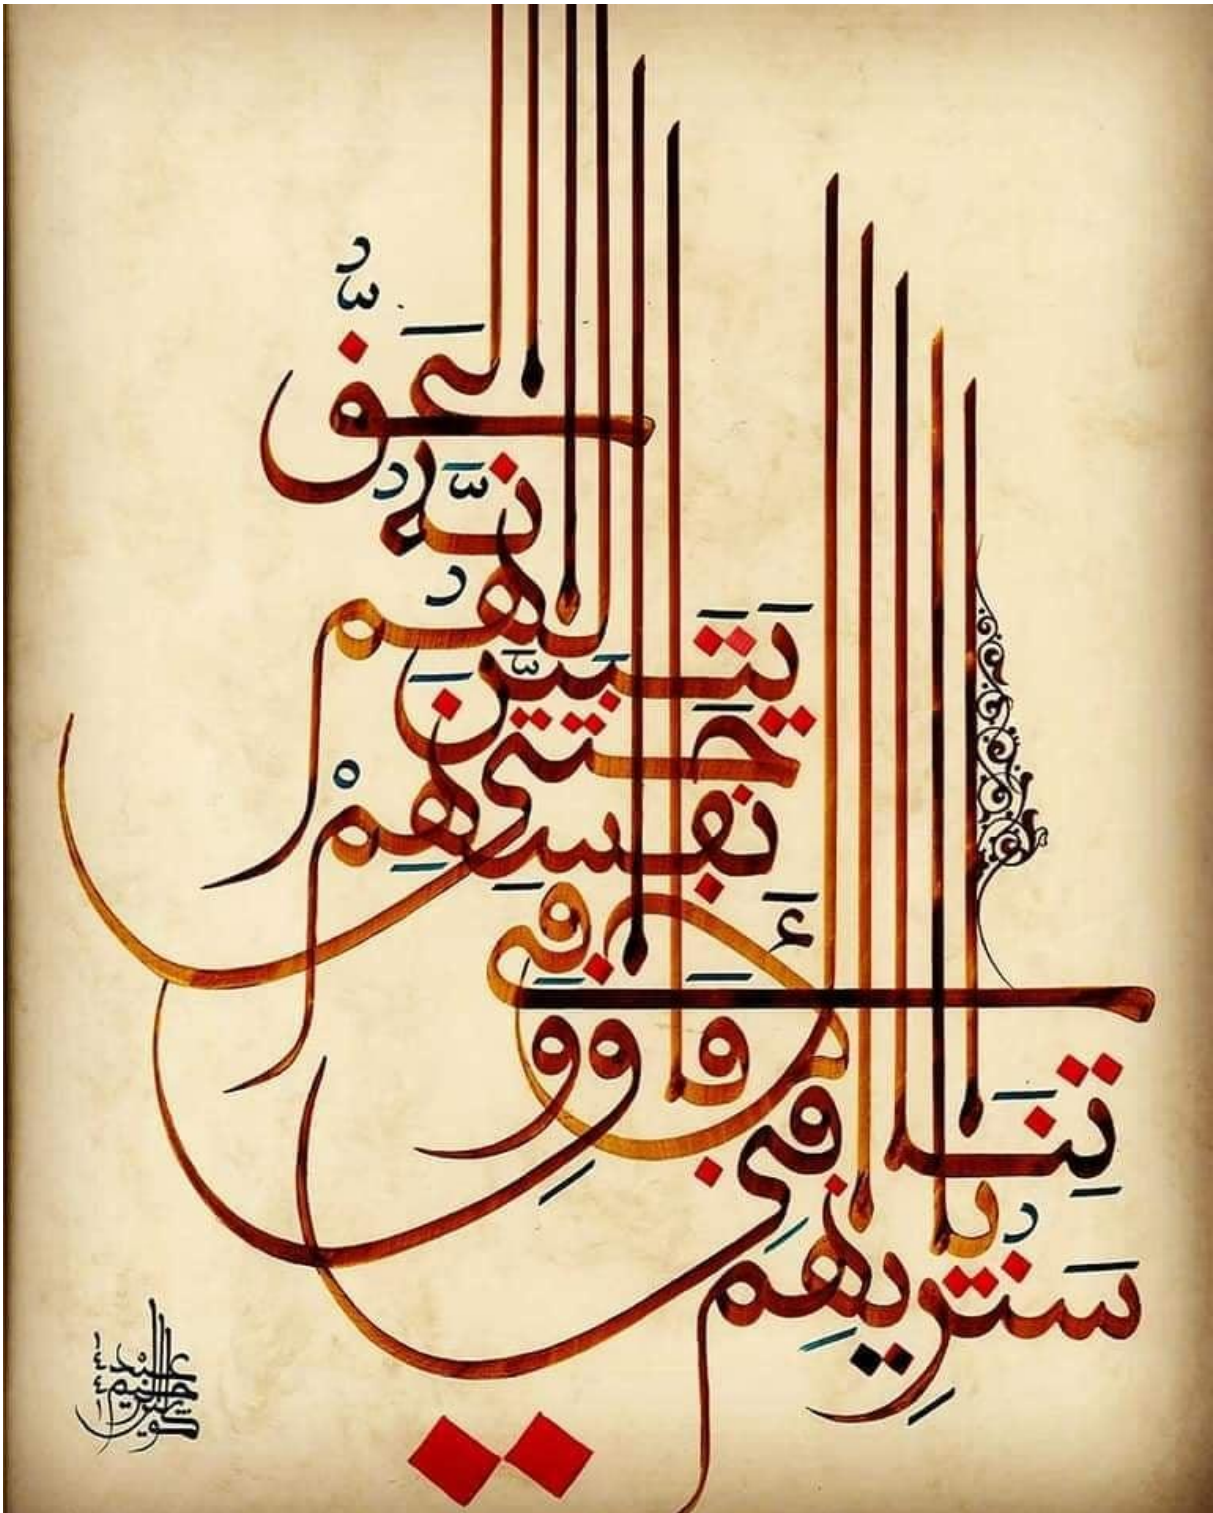 سَنُرِيهِم
آيَاتِنَا فِي
الآفَاقِ وَفِي
أَنفُسِهِمْ
حَتَّى
يَتَبَيَّنَ لَهُمُ
أَنَّهُ
الحَقُّ
١٤٤١